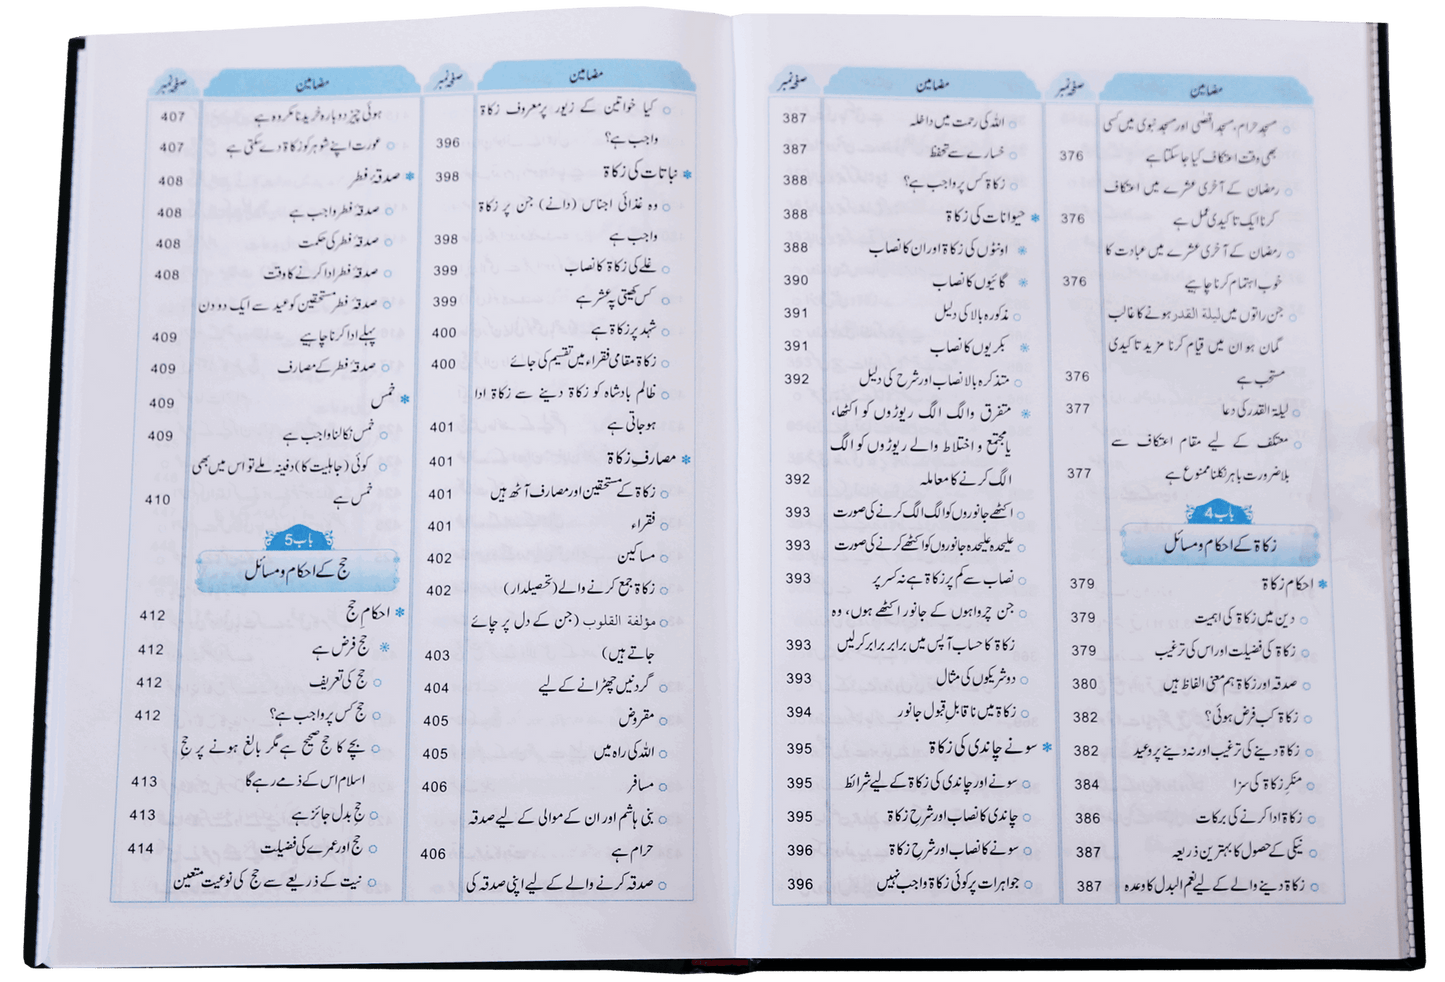 مضامین
صفحہ نمبر
مسجد حرام، مسجد اقصیٰ اور مسجد نبوی میں کسی
بھی وقت اعتکاف کیا جا سکتا ہے 376
رمضان کے آخری عشرے میں اعتکاف
کرنا ایک تاکیدی عمل ہے 376
رمضان کے آخری عشرے میں عبادت کا
خوب اہتمام کرنا چاہیے 376
جن راتوں میں لیلۃ القدر ہونے کا غالب
گمان ہو ان میں قیام کرنا مزید تاکیدی
مستحب ہے 376
لیلۃ القدر کی دعا 377
معتکف کے لیے مقام اعتکاف سے
بلا ضرورت باہر نکلنا ممنوع ہے 377
باب 4
زکاۃ کے احکام و مسائل
* احکام زکاۃ 379
دین میں زکاۃ کی اہمیت 379
زکاۃ کی فضیلت اور اس کی ترغیب 379
صدقہ اور زکاۃ ہم معنی الفاظ ہیں 380
زکاۃ کب فرض ہوئی؟ 382
زکاۃ دینے کی ترغیب اور نہ دینے پر وعید 382
منکرِ زکاۃ کی سزا 384
زکاۃ ادا کرنے کی برکات 386
نیکی کے حصول کا بہترین ذریعہ 387
زکاۃ دینے والے کے لیے نعم البدل کا وعدہ 387
مضامین
صفحہ نمبر
اللہ کی رحمت میں داخلہ 387
خسارے سے تحفظ 387
زکاۃ کس پر واجب ہے؟ 388
* حیوانات کی زکاۃ 388
* اونٹوں کی زکاۃ اور ان کا نصاب 388
* گائیوں کا نصاب 390
مذکورہ بالا کی دلیل 391
* بکریوں کا نصاب 391
متذکرہ بالا نصاب اور شرح کی دلیل 392
* متفرق و الگ الگ ریوڑوں کو اکٹھا،
یا مجتمع و اختلاط والے ریوڑوں کو الگ
الگ کرنے کا معاملہ 392
اکٹھے جانوروں کو الگ الگ کرنے کی صورت 393
علیحدہ علیحدہ جانوروں کو اکٹھے کرنے کی صورت 393
نصاب سے کم پر زکاۃ ہے نہ کسر پر 393
جن چرواہوں کے جانور اکٹھے ہوں، وہ
زکاۃ کا حساب آپس میں برابر برابر کر لیں 393
دو شریکوں کی مثال 393
زکاۃ میں نا قابلِ قبول جانور 394
* سونے چاندی کی زکاۃ 395
سونے اور چاندی کی زکاۃ کے لیے شرائط 395
چاندی کا نصاب اور شرحِ زکاۃ 395
سونے کا نصاب اور شرحِ زکاۃ 396
جواہرات پر کوئی زکاۃ واجب نہیں 396
مضامین
صفحہ نمبر
کیا خواتین کے زیور پر معروف زکاۃ
واجب ہے؟ 396
* نباتات کی زکاۃ 398
وہ غذائی اجناس (دانے) جن پر زکاۃ
واجب ہے 398
غلے کی زکاۃ کا نصاب 399
کس کھیتی پہ عشر ہے 399
شہد پر زکاۃ ہے 400
زکاۃ مقامی فقراء میں تقسیم کی جائے 400
ظالم بادشاہ کو زکاۃ دینے سے زکاۃ ادا
ہو جاتی ہے 401
* مصارفِ زکاۃ 401
زکاۃ کے مستحقین اور مصارف آٹھ ہیں 401
فقراء 401
مساکین 402
زکاۃ جمع کرنے والے (تحصیلدار) 402
مؤلفۃ القلوب (جن کے دل پر چائے
جاتے ہیں) 403
گردنیں چھڑانے کے لیے 404
مقروض 405
اللہ کی راہ میں 405
مسافر 406
بنی ہاشم اور ان کے موالی کے لیے صدقہ
حرام ہے 406
صدقہ کرنے والے کے لیے اپنی صدقہ کی
مضامین
صفحہ نمبر
ہوئی چیز دوبارہ خریدنا مکروہ ہے 407
عورت اپنے شوہر کو زکاۃ دے سکتی ہے 407
* صدقۂ فطر 408
صدقۂ فطر واجب ہے 408
صدقۂ فطر کی حکمت 408
صدقۂ فطر ادا کرنے کا وقت 408
صدقۂ فطر مستحقین کو عید سے ایک دو دن
پہلے ادا کرنا چاہیے 409
صدقۂ فطر کے مصارف 409
* خمس 409
خمس نکالنا واجب ہے 409
کوئی (جاہلیت کا) دفینہ ملے تو اس میں بھی
خمس ہے 410
باب 5
حج کے احکام و مسائل
* احکامِ حج 412
* حج فرض ہے 412
حج کی تعریف 412
حج کس پر واجب ہے؟ 412
بچے کا حج صحیح ہے مگر بالغ ہونے پر حج
اسلام اس کے ذمے رہے گا 413
حج بدل جائز ہے 413
حج اور عمرے کی فضیلت 414
نیت کے ذریعے سے حج کی نوعیت متعین